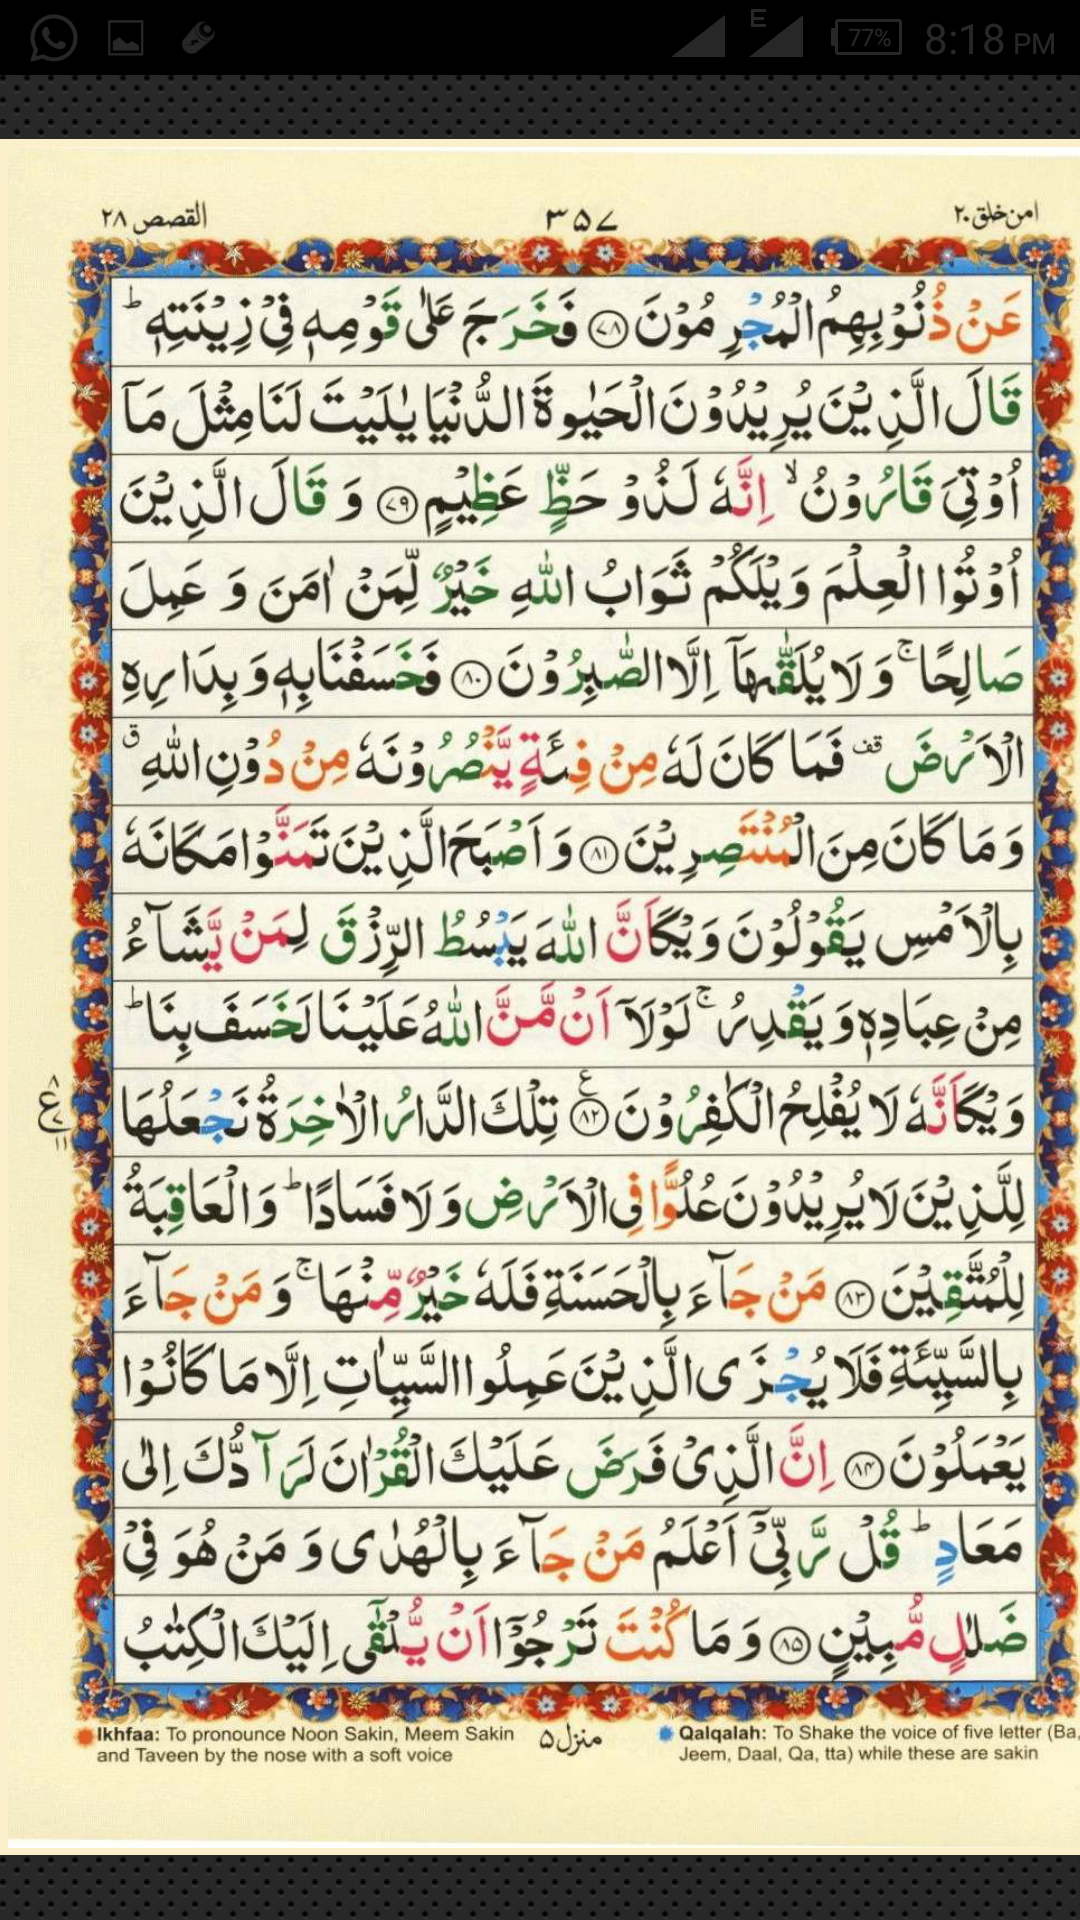 E 77% 8:18 PM
امن خلق ۲۰
۳۵۷
القصص ۲۸
عَنْ ذُنُوْبِهِمُ الْمُجْرِمُوْنَ ﴿۷۸﴾ فَخَرَجَ عَلٰى قَوْمِهٖ فِیْ زِیْنَتِهٖ ؕ
قَالَ الَّذِیْنَ یُرِیْدُوْنَ الْحَیٰوةَ الدُّنْیَا یٰلَیْتَ لَنَا مِثْلَ مَاۤ
اُوْتِیَ قَارُوْنُ ۙ اِنَّهٗ لَذُوْ حَظٍّ عَظِیْمٍ ﴿۷۹﴾ وَ قَالَ الَّذِیْنَ
اُوْتُوا الْعِلْمَ وَیْلَكُمْ ثَوَابُ اللّٰهِ خَیْرٌ لِّمَنْ اٰمَنَ وَ عَمِلَ
صَالِحًا ۚ وَ لَا یُلَقّٰىهَاۤ اِلَّا الصّٰبِرُوْنَ ﴿۸۰﴾ فَخَسَفْنَا بِهٖ وَ بِدَارِهِ
الْاَرْضَ قف فَمَا كَانَ لَهٗ مِنْ فِئَةٍ یَّنْصُرُوْنَهٗ مِنْ دُوْنِ اللّٰهِ ق
وَ مَا كَانَ مِنَ الْمُنْتَصِرِیْنَ ﴿۸۱﴾ وَ اَصْبَحَ الَّذِیْنَ تَمَنَّوْا مَكَانَهٗ
بِالْاَمْسِ یَقُوْلُوْنَ وَیْكَاَنَّ اللّٰهَ یَبْسُطُ الرِّزْقَ لِمَنْ یَّشَآءُ
مِنْ عِبَادِهٖ وَ یَقْدِرُ ۚ لَوْلَاۤ اَنْ مَّنَّ اللّٰهُ عَلَیْنَا لَخَسَفَ بِنَا ؕ
وَیْكَاَنَّهٗ لَا یُفْلِحُ الْكٰفِرُوْنَ ﴿۸۲﴾ ع تِلْكَ الدَّارُ الْاٰخِرَةُ نَجْعَلُهَا
۸ ع ۷ ۱۱
لِلَّذِیْنَ لَا یُرِیْدُوْنَ عُلُوًّا فِی الْاَرْضِ وَ لَا فَسَادًا ؕ وَ الْعَاقِبَةُ
لِلْمُتَّقِیْنَ ﴿۸۳﴾ مَنْ جَآءَ بِالْحَسَنَةِ فَلَهٗ خَیْرٌ مِّنْهَا ۚ وَ مَنْ جَآءَ
بِالسَّیِّئَةِ فَلَا یُجْزَى الَّذِیْنَ عَمِلُوا السَّیِّاٰتِ اِلَّا مَا كَانُوْا
یَعْمَلُوْنَ ﴿۸۴﴾ اِنَّ الَّذِیْ فَرَضَ عَلَیْكَ الْقُرْاٰنَ لَرَآدُّكَ اِلٰى
مَعَادٍ ؕ قُلْ رَّبِّیْۤ اَعْلَمُ مَنْ جَآءَ بِالْهُدٰى وَ مَنْ هُوَ فِیْ
ضَلٰلٍ مُّبِیْنٍ ﴿۸۵﴾ وَ مَا كُنْتَ تَرْجُوْۤا اَنْ یُّلْقٰۤى اِلَیْكَ الْكِتٰبُ
Ikhfaa: To pronounce Noon Sakin, Meem Sakin
and Taveen by the nose with a soft voice
منزل ۵
Qalqalah: To Shake the voice of five letter (Ba,
Jeem, Daal, Qa, tta) while these are sakin